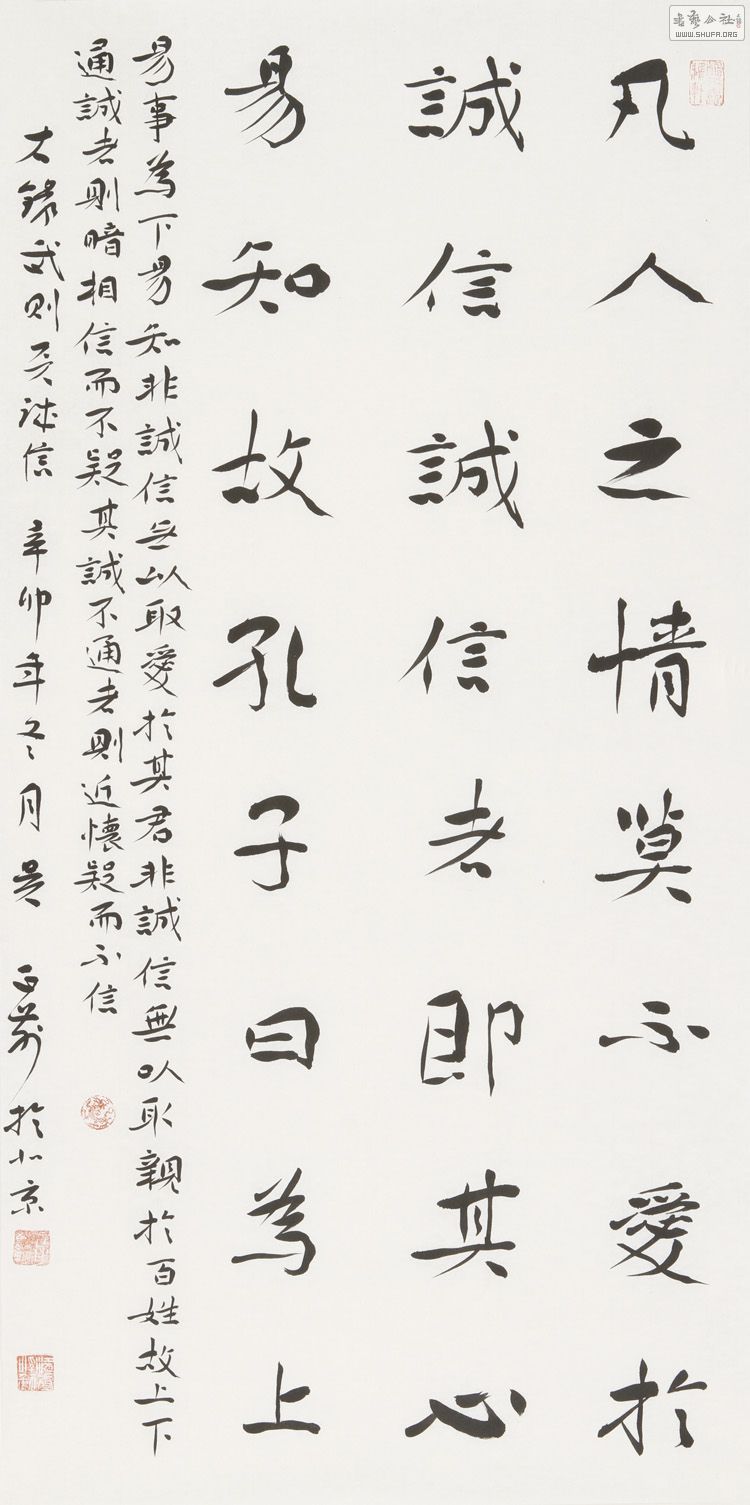 凡人之情莫不愛於
誠信誠信者即其心
易知故孔子曰為上
易事為下易知非誠信无以取愛於其君非誠信無以取親於百姓故上下
通誠者則暗相信而不疑其誠不通者則近懷疑而不信
右録武则天誠信 辛卯年冬月吴 於北京
書藝公社
WWW.SHUFA.ORG